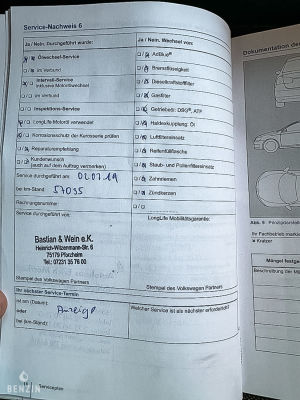 Service-Nachweis 6
Ja / Nein. Durchgeführt wurde:
Ölwechsel-Service
im Verbund
Intervall-Service
inklusive Motorölwechsel
im Verbund
Inspektions-Service
LongLife Motoröl verwendet
Korrosionsschutz der Karosserie prüfen
Reparaturempfehlung
Kundenwunsch
(auch auf dem Auftrag vermerken)
Service durchgeführt am: 02.07.19
bei km-Stand: 57035
Rechnungsnummer:
Service durchgeführt von:
Bastian & Wein e.K.
Heinrich-Witzenmann-Str. 6
75179 Pforzheim
Tel.: 07231 35 76 00
Stempel des Volkswagen Partners
Ihr nächster Service-Termin
ist am (Datum):
oder
Anzeige
bei (km-Stand):
Ja / Nein. Wechsel von:
AdBlue®
Bremsflüssigkeit
Dieselkraftstofffilter
Gasfilter
Getriebeöl: DSG®, ATF
Haldexkupplung: Öl
Luftfiltereinsatz
Reifenfüllflasche
Staub- und Pollenfiltereinsatz
Zahnriemen
Zündkerzen
LongLife Mobilitätsgarantie:
Stempel des Volkswagen Partners
Welcher Service ist als nächster erforderlich?
Serviceplan
Dokumentation de
Abb. 5 Prinzipdarstell
Ihr Fachbetrieb markie
Kratzer
Mängel festg
Beschreibung der M
BENZIN